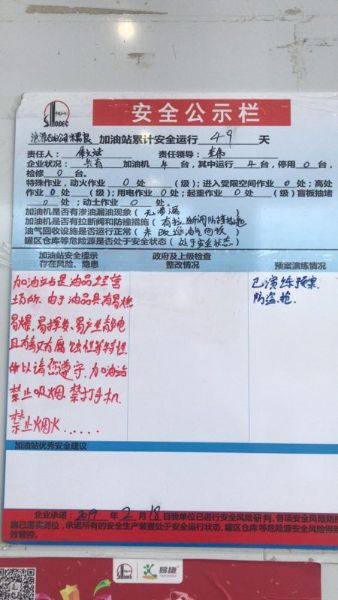 SINOPEC
安全公示栏
加油站累计安全运行 49 天
责任人： 责任领导：
企业状况： 加油机 4 台，其中运行 4 台，停用 0 台，
检修 0 台。
特殊作业，动火作业 0 处（ 级）；进入受限空间作业 0 处；高处
作业 0 处（ 级）；用电作业 0 处；起重作业 0 处（ 级）；盲板抽堵
0 处；动土作业 0 处。
加油机是否有渗油漏油现象（无渗漏）
加油机是否有拉断阀和防撞措施（有拉断阀防撞措施）
油气回收设施是否运行正常（未改造油气回收）
罐区仓库等危险源是否处于安全状态（处于安全状态）
加油站安全提示 政府及上级检查 预案演练情况
存在风险、隐患 整改情况
加油站是油品经营
场所，由于油品具有易燃
易爆、易挥发、易产生静电
且有毒又有腐蚀性等特性
所以请您遵守，加油站
禁止吸烟，禁打手机
禁止烟火......
已演练预案
防盗抢
加油站优秀安全建议
企业承诺：2019 年 2 月 18 日我单位已进行安全风险研判，各项安全风险防控
措施已落实到位，承诺所有的安全生产装置处于安全运行状态，罐区仓库等危险源安全风险得到
有效管控。
易捷